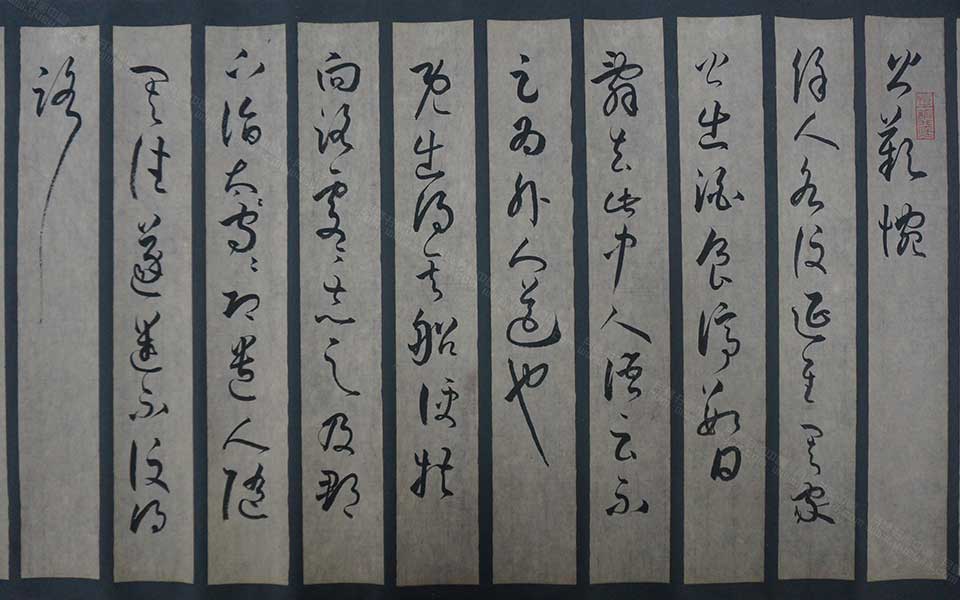 皆歎惋
餘人各復延至其家
皆出酒食停數日
辭去此中人語云不
足為外人道也
既出得其船便扶
向路處〻志之及郡
下詣太守〻即遣人隨
其往遂迷不復得
路